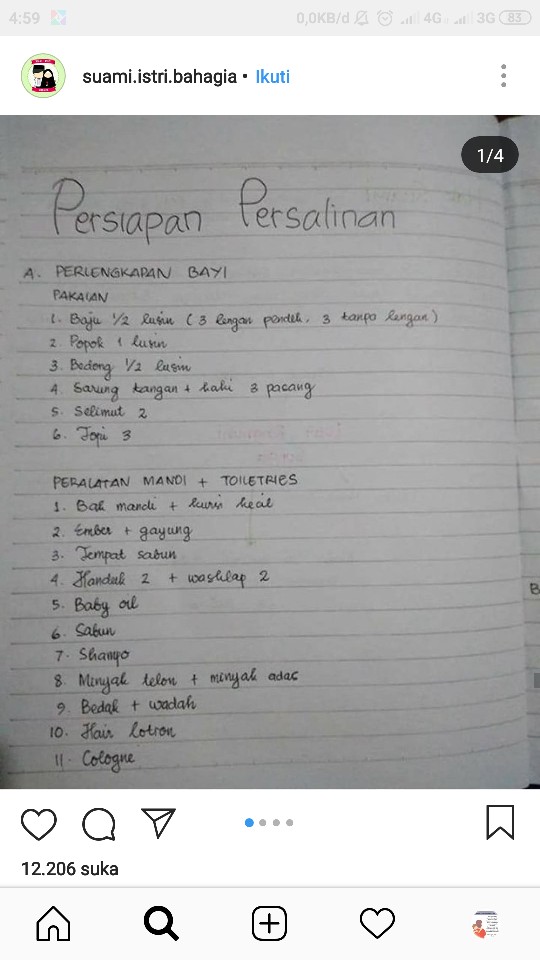 4:59 0,0KB/d 4G 3G 83
suami.istri.bahagia • Ikuti
1/4
Persiapan Persalinan
A. PERLENGKAPAN BAYI
PAKAIAN
1. Baju 1/2 lusin ( 3 lengan pendek, 3 tanpa lengan )
2. Popok 1 lusin
3. Bedong 1/2 lusin
4. Sarung tangan + kaki 3 pasang
5. Selimut 2
6. Topi 3
PERALATAN MANDI + TOILETRIES
1. Bak mandi + kursi kecil
2. Ember + gayung
3. Tempat sabun
4. Handuk 2 + washlap 2
5. Baby oil
6. Sabun
7. Shampo
8. Minyak telon + minyak adas
9. Bedak + wadah
10. Hair lotion
11. Cologne
B
12.206 suka